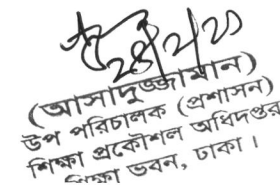 ২৪/২/২১
(আসাদুজ্জামান)
উপ পরিচালক (প্রশাসন)
শিক্ষা প্রকৌশল অধিদপ্তর
শিক্ষা ভবন, ঢাকা।